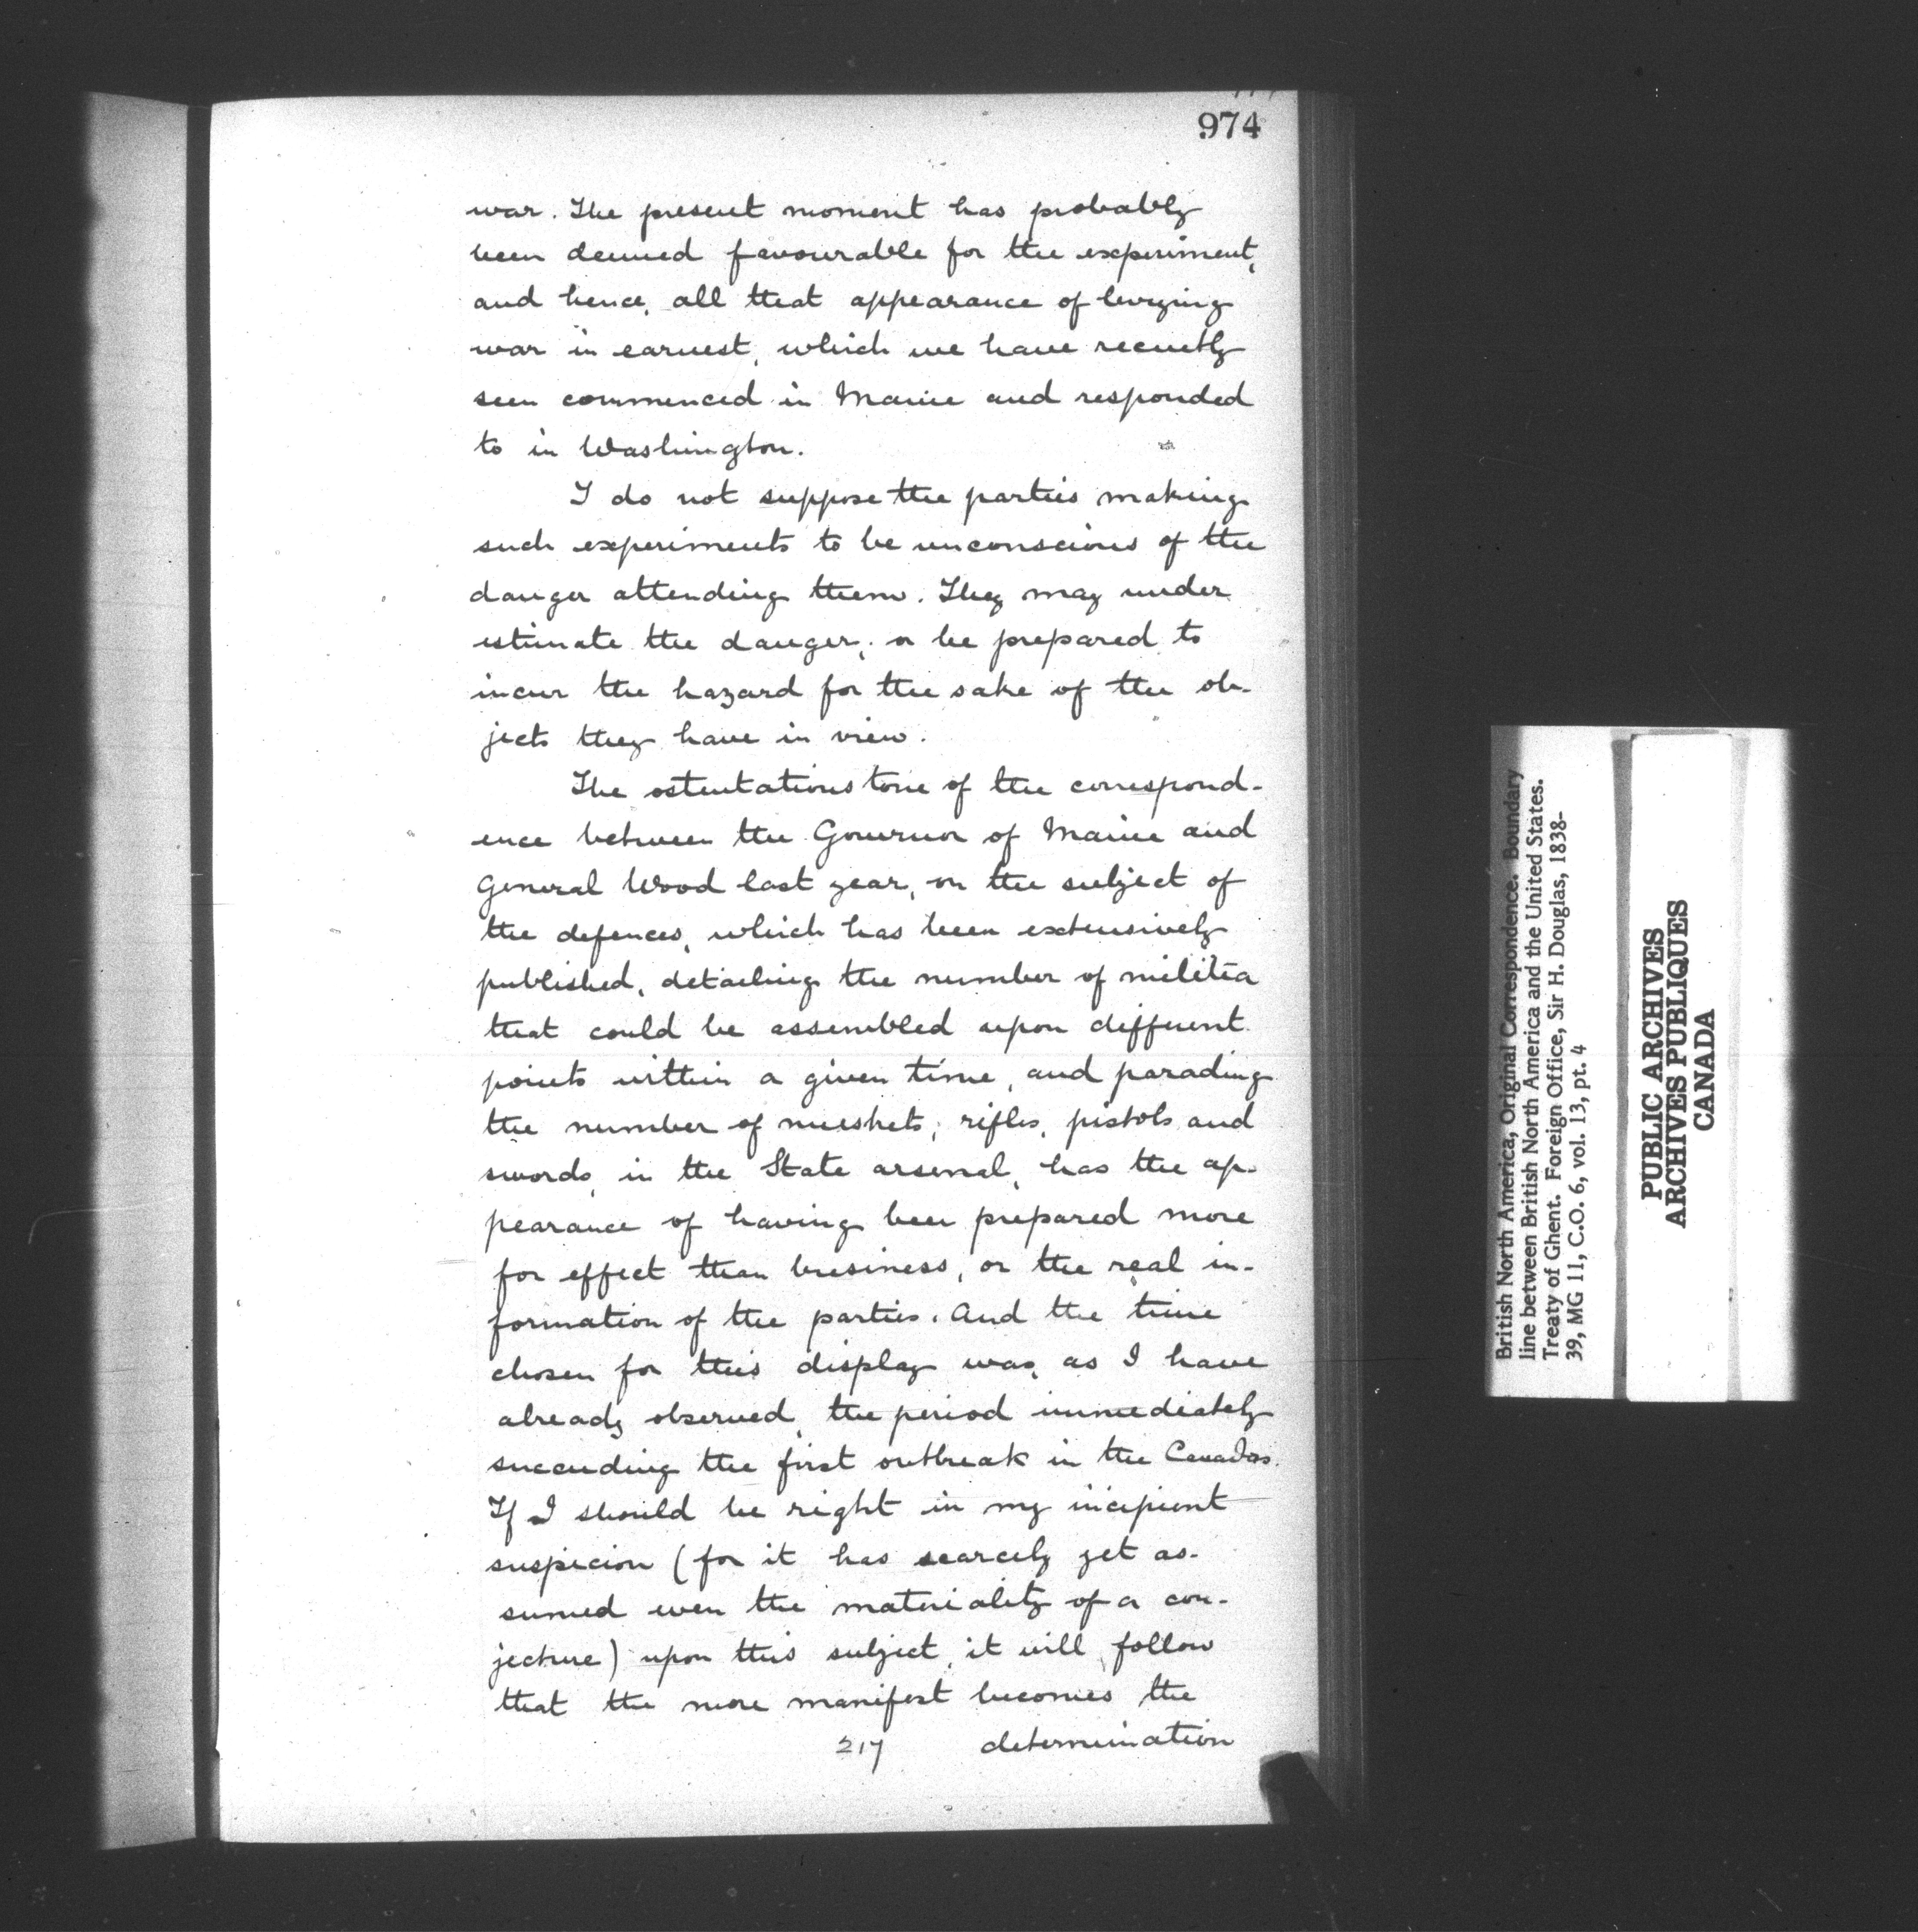 974
war. The present moment has probably
been deemed favourable for the experiment,
and hence, all that appearance of levying
war in earnest, which we have recently
seen commenced in Maine and responded
to in Washington.
I do not suppose the parties making
such experiments to be unconscious of the
danger attending them. They may under
estimate the danger, or be prepared to
incur the hazard for the sake of the ob-
jects they have in view.
The ostentatious tone of the correspond-
ence between the Governor of Maine and
General Wood last year, on the subject of
the defences, which has been extensively
published, detailing the number of militia
that could be assembled upon different
points within a given time, and parading
the number of muskets, rifles, pistols and
swords, in the State arsenal, has the ap-
pearance of having been prepared more
for effect than business, or the real in-
formation of the parties. And the time
chosen for this display was, as I have
already observed, the period immediately
succeeding the first outbreak in the Canadas.
If I should be right in my incipient
suspicion (for it has scarcely yet as-
sumed even the materiality of a con-
jecture) upon this subject, it will follow
that the more manifest becomes the
217 determination
British North America, Original Correspondence. Boundary
line between British North America and the United States.
Treaty of Ghent. Foreign Office, Sir H. Douglas, 1838-
39, MG 11, C.O. 6, vol. 13, pt. 4
PUBLIC ARCHIVES
ARCHIVES PUBLIQUES
CANADA